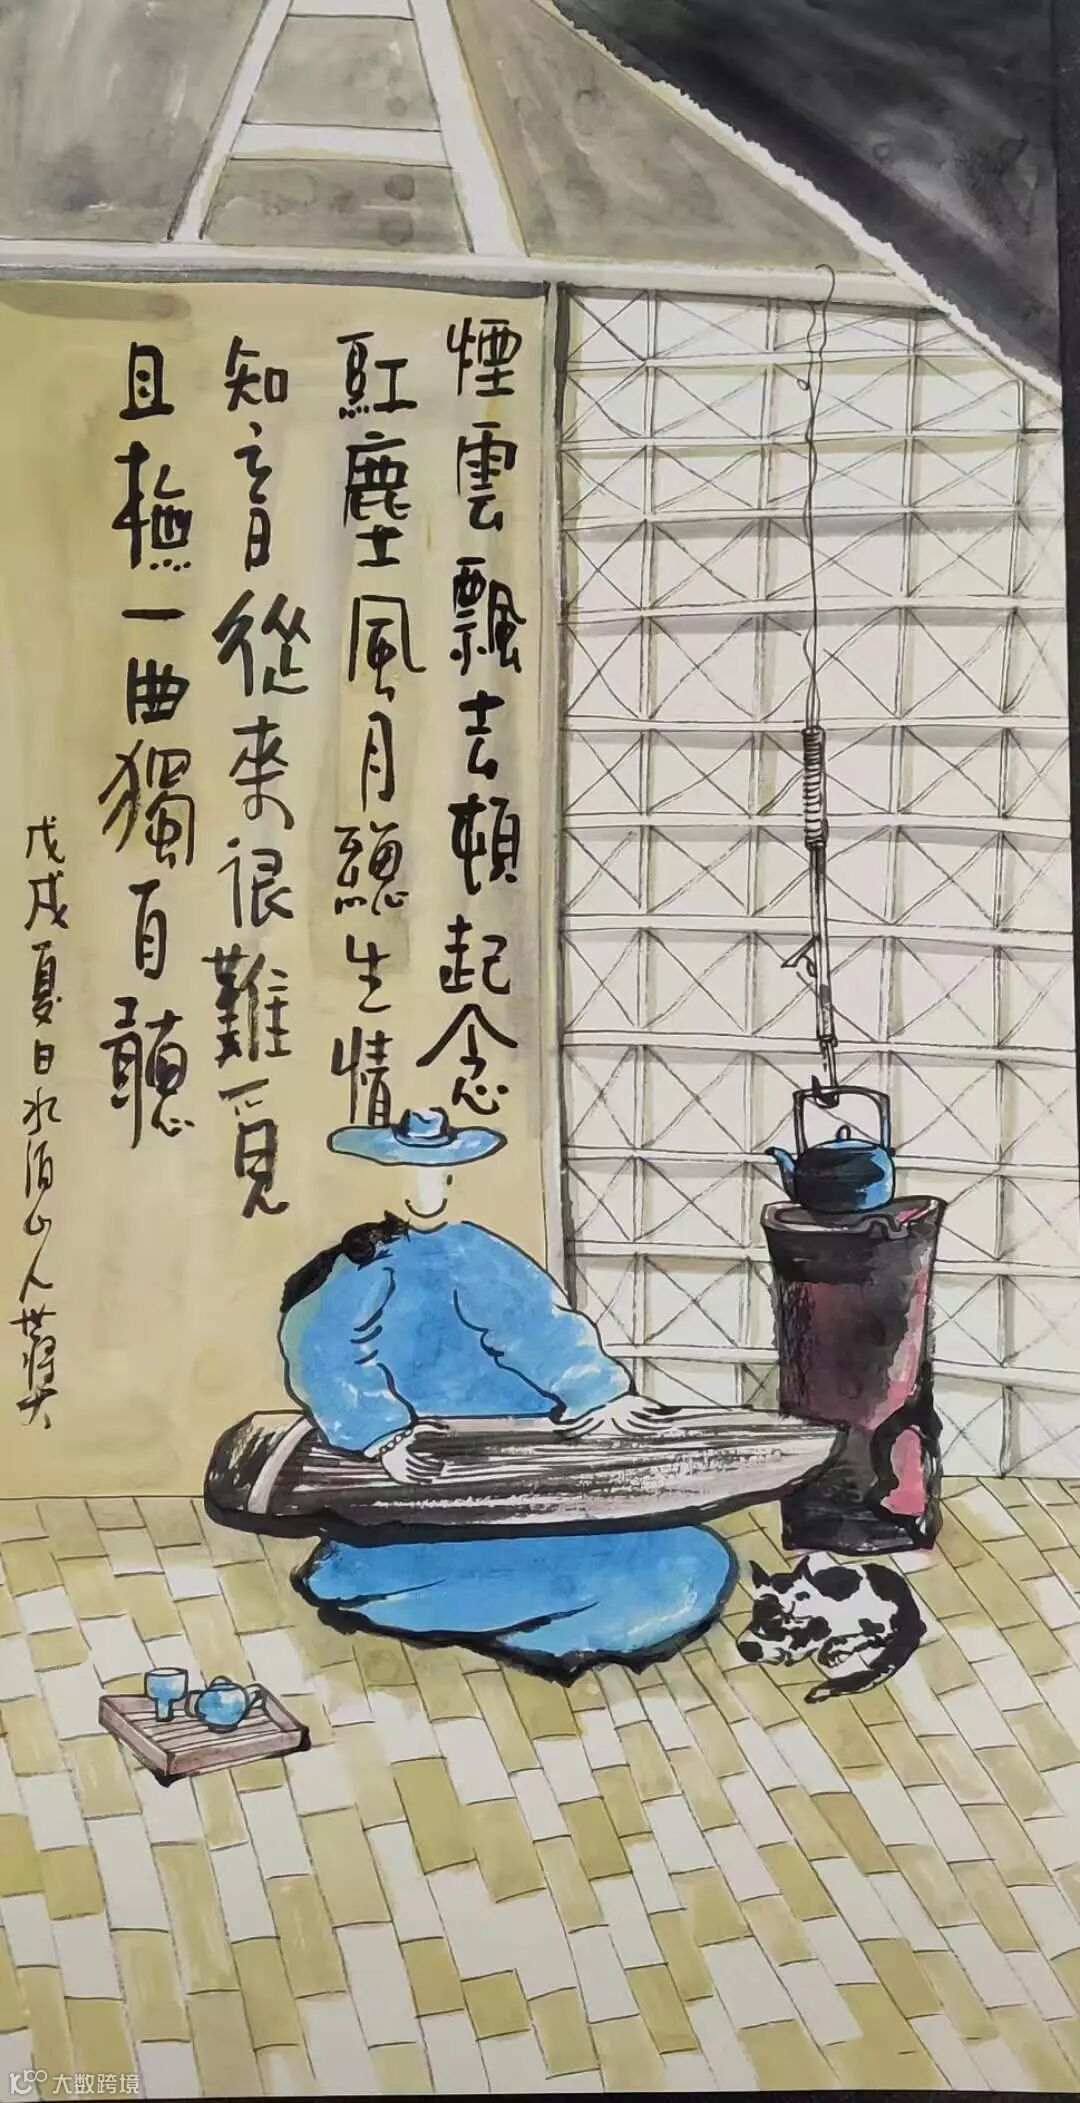 煙雲飄去頓起念
紅塵風月聽生情
知音從來很難覓
且撫一曲獨自聽
戊戌夏日水泊山人
大数跨境